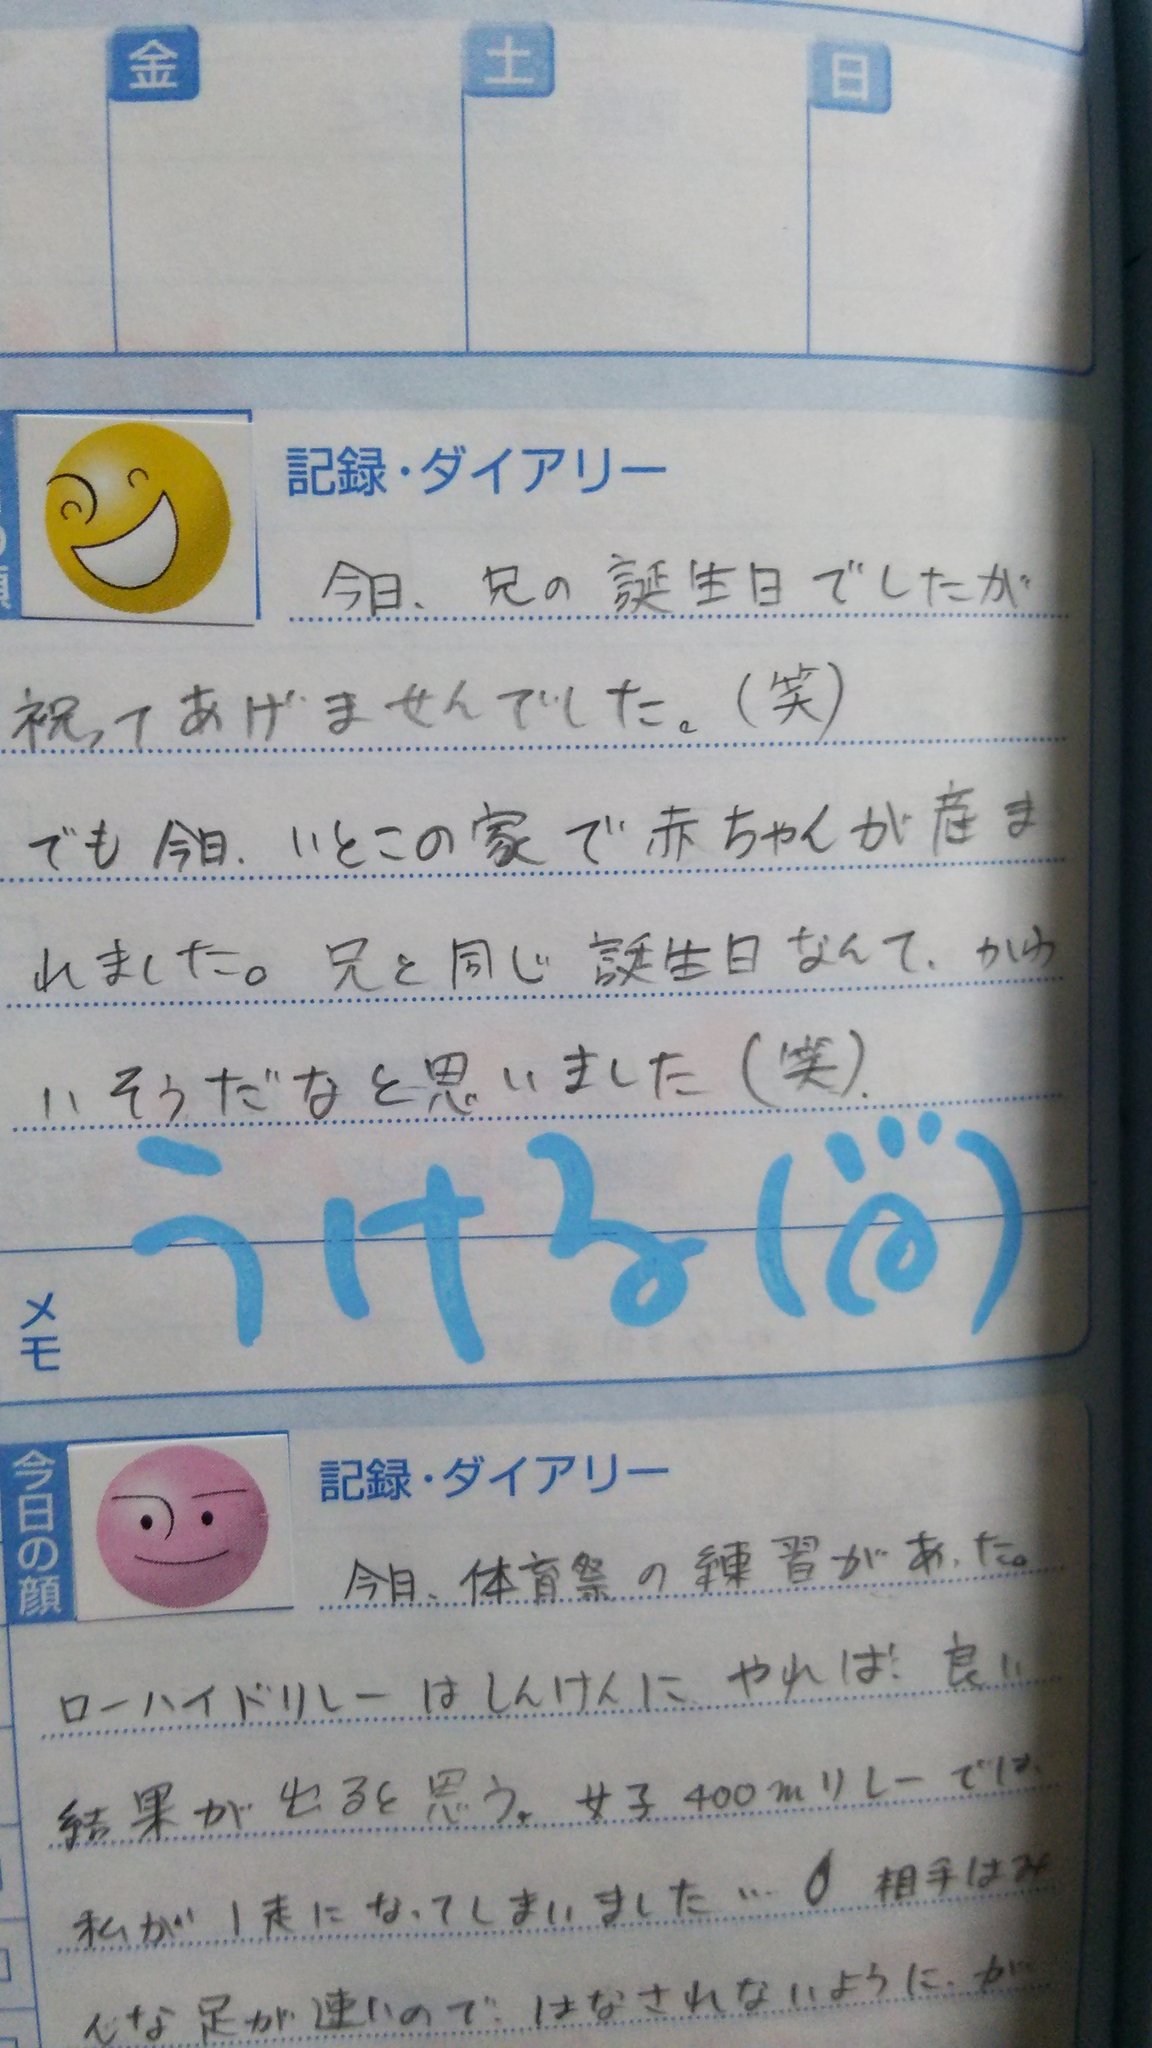 金 土 日
記録・ダイアリー
今日、兄の誕生日でしたが
祝ってあげませんでした。(笑)
でも今日、いとこの家で赤ちゃんが産ま
れました。兄と同じ誕生日なんて、かわ
いそうだなと思いました(笑).
うける
メモ
今日の顔
記録・ダイアリー
今日、体育祭の練習があった。
ローハイドリレーはしんけんにやれば良い
結果が出ると思う。女子400mリレーでは、
私が1走になってしまいました… 相手はみ
んな足が速いので はなされないように、が